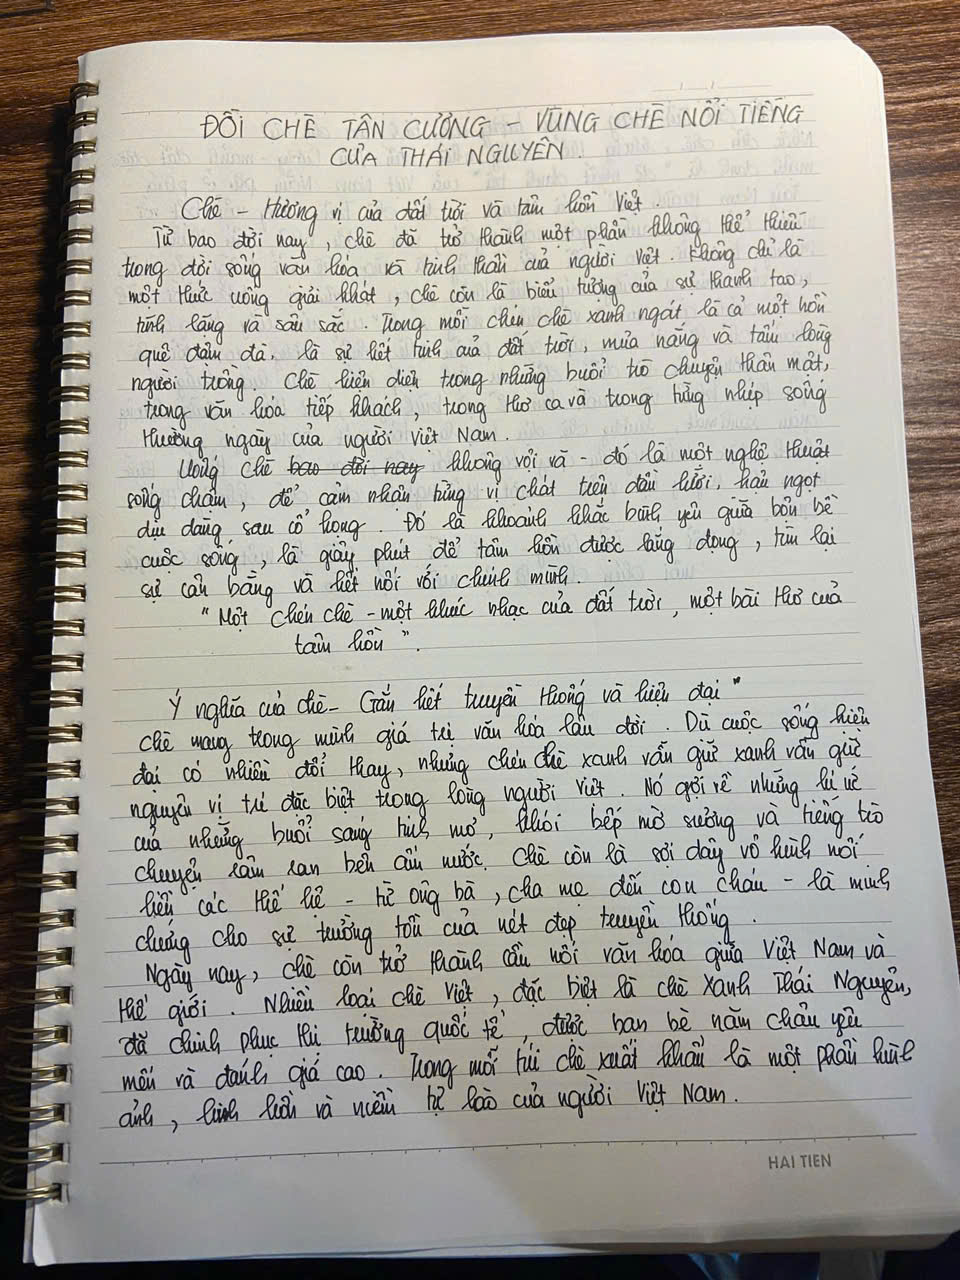 ĐỒI CHÈ TÂN CƯƠNG – VÙNG CHÈ NỔI TIẾNG
CỦA THÁI NGUYÊN.
Chè – Hương vị của đất trời và tâm hồn Việt.
Từ bao đời nay, chè đã trở thành một phần không thể thiếu
trong đời sống văn hóa và tinh thần của người Việt. Không chỉ là
một thức uống giải khát, chè còn là biểu tượng của sự thanh tao,
tĩnh lặng và sâu sắc. Trong mỗi chén chè xanh ngát là cả một hồn
quê đậm đà, là sự kết tinh của đất trời, mưa nắng và tấm lòng
người trồng. Chè hiện diện trong những buổi trò chuyện thân mật,
trong văn hóa tiếp khách, trong thơ ca và trong từng nhịp sống
thường ngày của người Việt Nam.
Uống chè bao đời nay không vội vã – đó là một nghệ thuật
sống chậm, để cảm nhận từng vị chát trên đầu lưỡi, hậu ngọt
dịu dàng sau cổ họng. Đó là khoảnh khắc bình yên giữa bộn bề
cuộc sống, là giây phút để tâm hồn được lắng đọng, tìm lại
sự cân bằng và kết nối với chính mình.
"Một chén chè – một khúc nhạc của đất trời, một bài thơ của
tâm hồn".
Ý nghĩa của chè – Gắn kết truyền thống và hiện đại"
Chè mang trong mình giá trị văn hóa lâu đời. Dù cuộc sống hiện
đại có nhiều đổi thay, nhưng chén chè xanh vẫn giữ xanh vẫn giữ
nguyên vị trí đặc biệt trong lòng người Việt. Nó gợi về những kí ức
của những buổi sáng tinh mơ, khói bếp mờ sương và tiếng trò
chuyện râm ran bên ấm nước. Chè còn là sợi dây vô hình nối
liền các thế hệ – từ ông bà, cha mẹ đến con cháu – là minh
chứng cho sự trường tồn của nét đẹp truyền thống.
Ngày nay, chè còn trở thành cầu nối văn hóa giữa Việt Nam và
thế giới. Nhiều loại chè Việt, đặc biệt là chè xanh Thái Nguyên,
đã chinh phục thị trường quốc tế, được bạn bè năm châu yêu
mến và đánh giá cao. Trong mỗi túi chè xuất khẩu là một phần hình
ảnh, linh hồn và niềm tự hào của người Việt Nam.
HAI TIEN